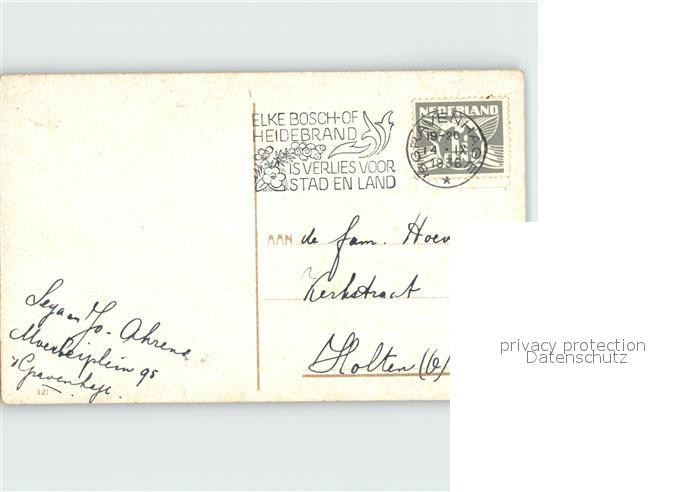 ELKE BOSCH-OF
HEIDEBRAND
IS VERLIES VOOR
STAD EN LAND
NEDERLAND
'S GRAVENHAGE
19-20
1936
AAN de fam. Hoev
Kerkstraat
Holten (O)
Jo. Ahrend
plein 95
's Gravenhage.
121
privacy protection
Datenschutz